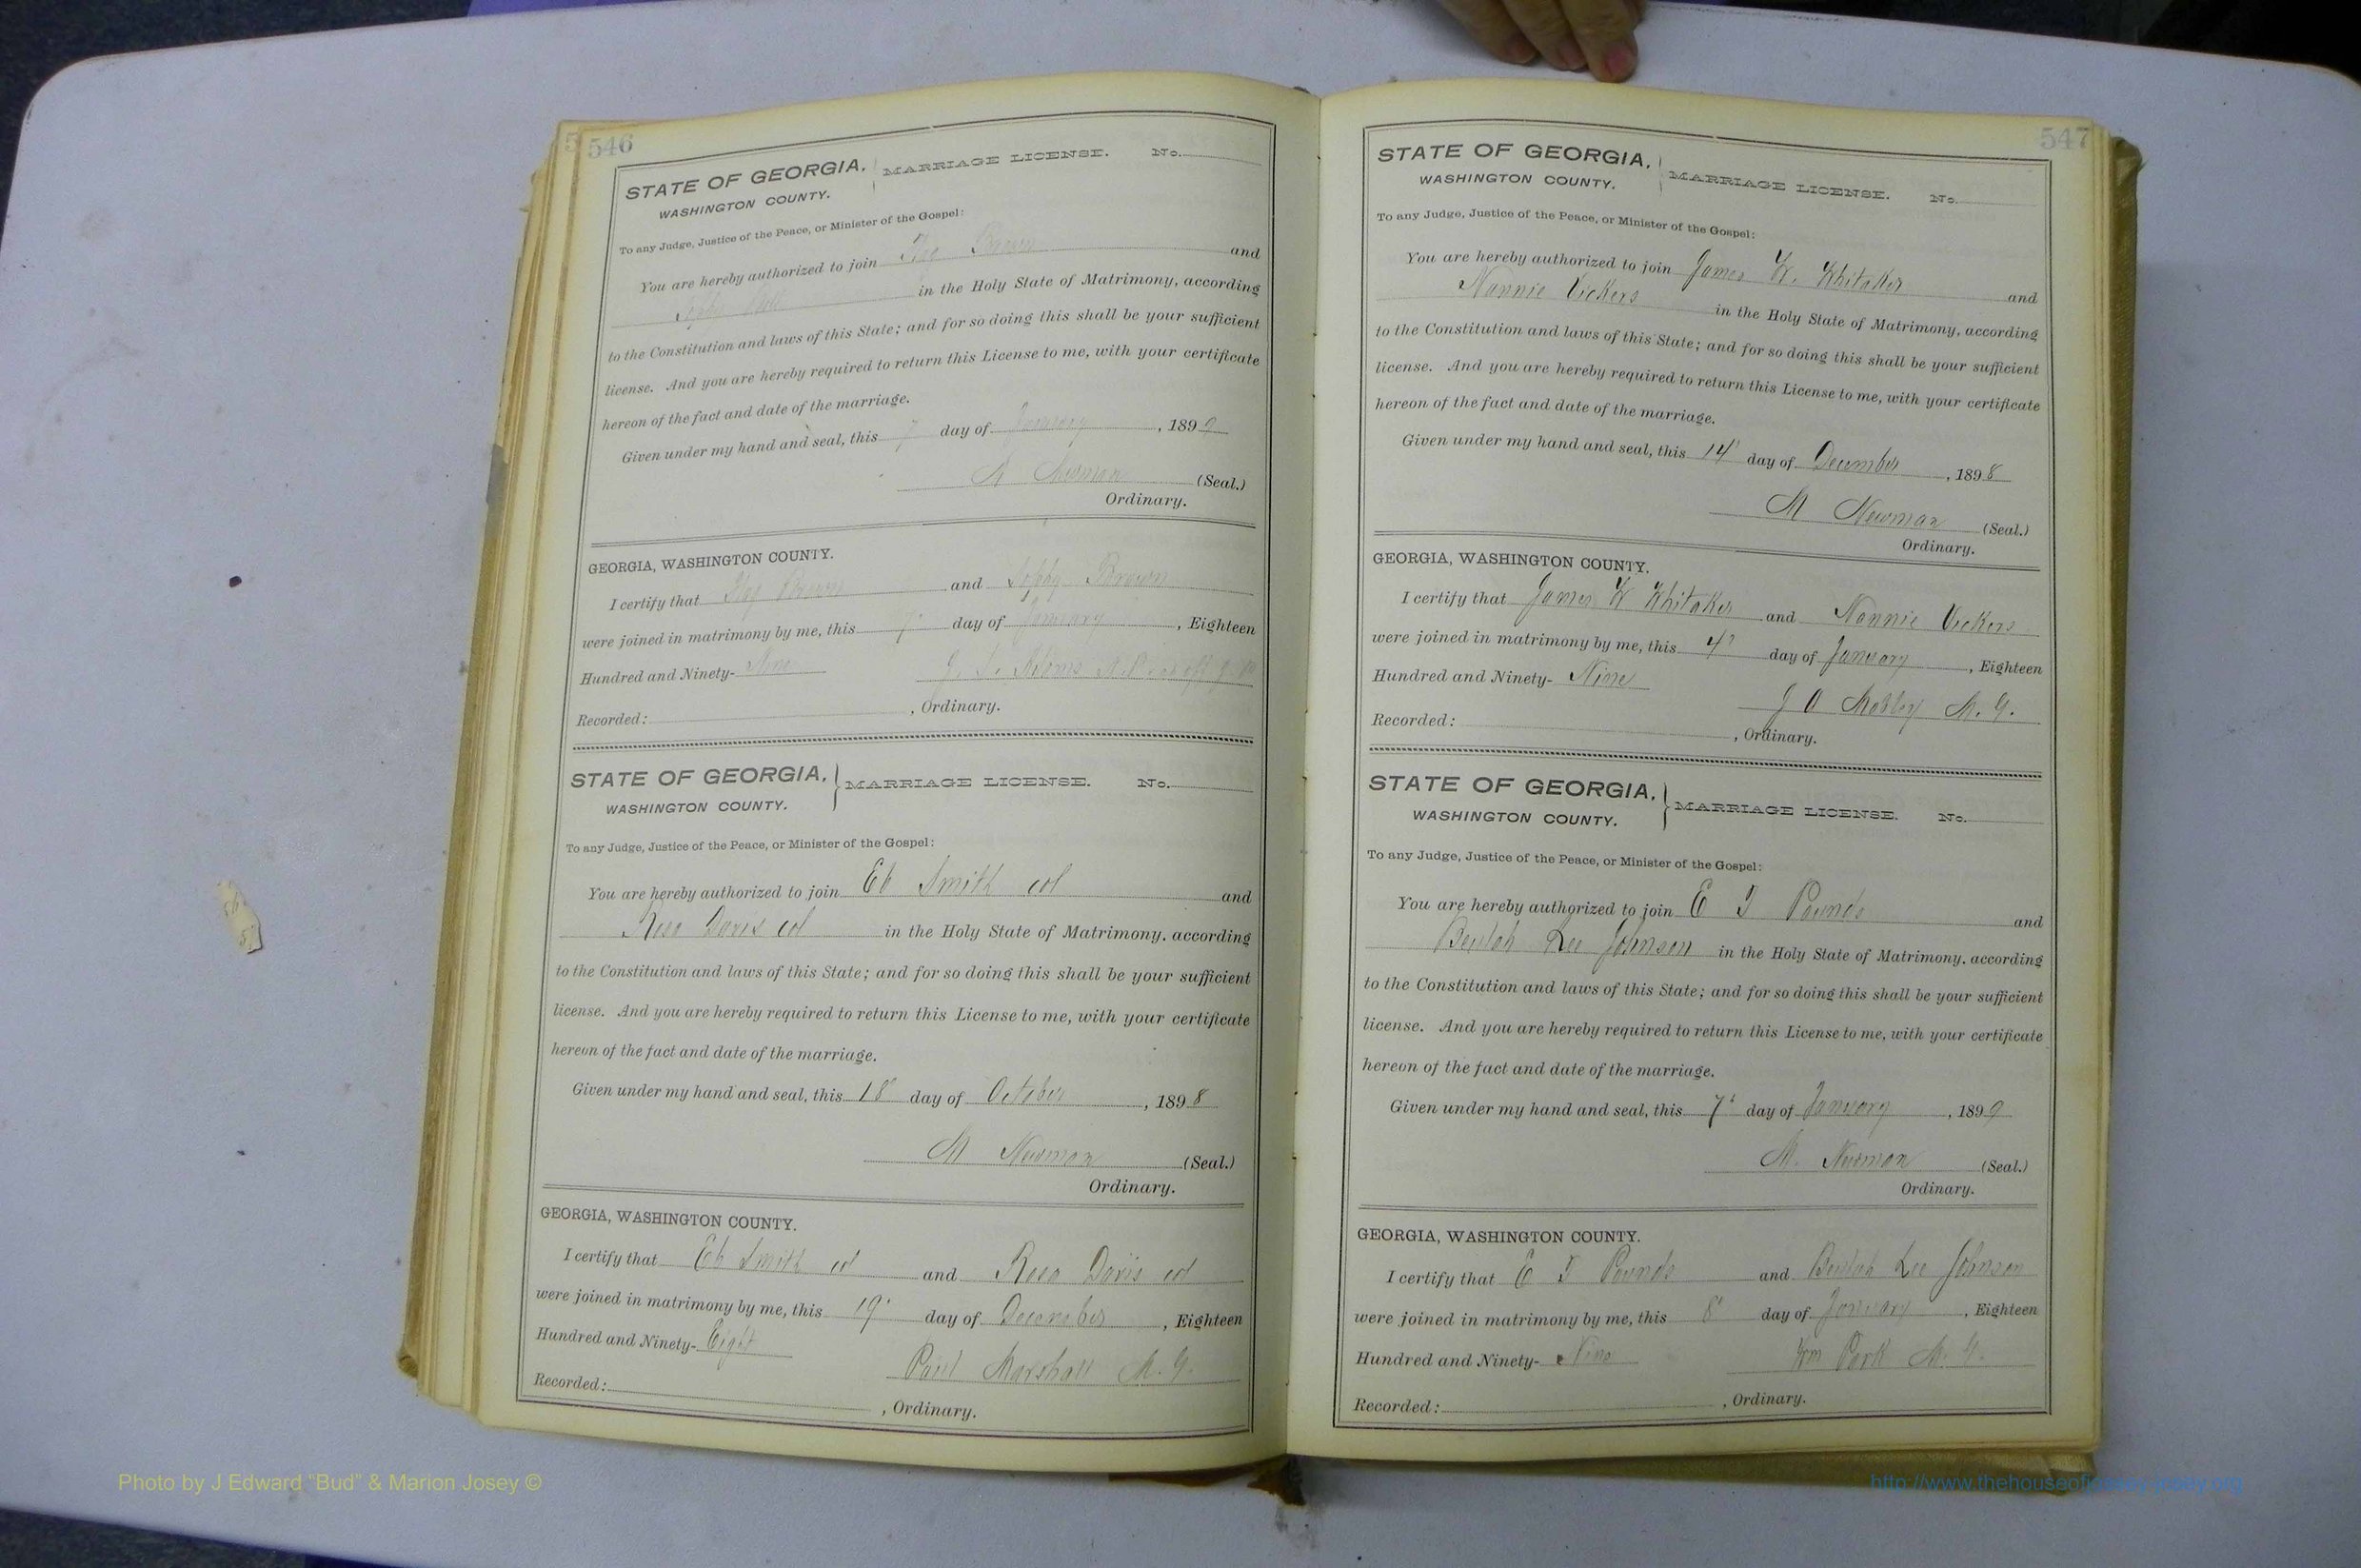 546
STATE OF GEORGIA, MARRIAGE LICENSE. No.
WASHINGTON COUNTY.
To any Judge, Justice of the Peace, or Minister of the Gospel:
You are hereby authorized to join Brown and
in the Holy State of Matrimony, according
to the Constitution and laws of this State; and for so doing this shall be your sufficient
license. And you are hereby required to return this License to me, with your certificate
hereon of the fact and date of the marriage.
Given under my hand and seal, this 7 day of January, 1899
M Newman (Seal.)
Ordinary.
GEORGIA, WASHINGTON COUNTY.
I certify that Brown and Brown
were joined in matrimony by me, this day of January, Eighteen
Hundred and Ninety- Nine
Recorded: , Ordinary.
STATE OF GEORGIA, MARRIAGE LICENSE. No.
WASHINGTON COUNTY.
To any Judge, Justice of the Peace, or Minister of the Gospel:
You are hereby authorized to join Eb Smith col and
Rosa Davis col in the Holy State of Matrimony, according
to the Constitution and laws of this State; and for so doing this shall be your sufficient
license. And you are hereby required to return this License to me, with your certificate
hereon of the fact and date of the marriage.
Given under my hand and seal, this 18 day of October, 1898
M Newman (Seal.)
Ordinary.
GEORGIA, WASHINGTON COUNTY.
I certify that Eb Smith col and Rosa Davis col
were joined in matrimony by me, this 19 day of December, Eighteen
Hundred and Ninety- Eight
Paul Marshall M. G.
Recorded: , Ordinary.
547
STATE OF GEORGIA, MARRIAGE LICENSE. No.
WASHINGTON COUNTY.
To any Judge, Justice of the Peace, or Minister of the Gospel:
You are hereby authorized to join James W. Whitaker and
Nannie Vickers in the Holy State of Matrimony, according
to the Constitution and laws of this State; and for so doing this shall be your sufficient
license. And you are hereby required to return this License to me, with your certificate
hereon of the fact and date of the marriage.
Given under my hand and seal, this 14 day of December, 1898
M Newman (Seal.)
Ordinary.
GEORGIA, WASHINGTON COUNTY.
I certify that James W Whitaker and Nannie Vickers
were joined in matrimony by me, this 4 day of January, Eighteen
Hundred and Ninety- Nine
J O Mobley M. G.
Recorded: , Ordinary.
STATE OF GEORGIA, MARRIAGE LICENSE. No.
WASHINGTON COUNTY.
To any Judge, Justice of the Peace, or Minister of the Gospel:
You are hereby authorized to join E T Pounds and
Beulah Lee Johnson in the Holy State of Matrimony, according
to the Constitution and laws of this State; and for so doing this shall be your sufficient
license. And you are hereby required to return this License to me, with your certificate
hereon of the fact and date of the marriage.
Given under my hand and seal, this 7 day of January, 1899
M. Newman (Seal.)
Ordinary.
GEORGIA, WASHINGTON COUNTY.
I certify that E T Pounds and Beulah Lee Johnson
were joined in matrimony by me, this 8 day of January, Eighteen
Hundred and Ninety- Nine
Wm Park M. G.
Recorded: , Ordinary.
Photo by J Edward "Bud" & Marion Josey ©